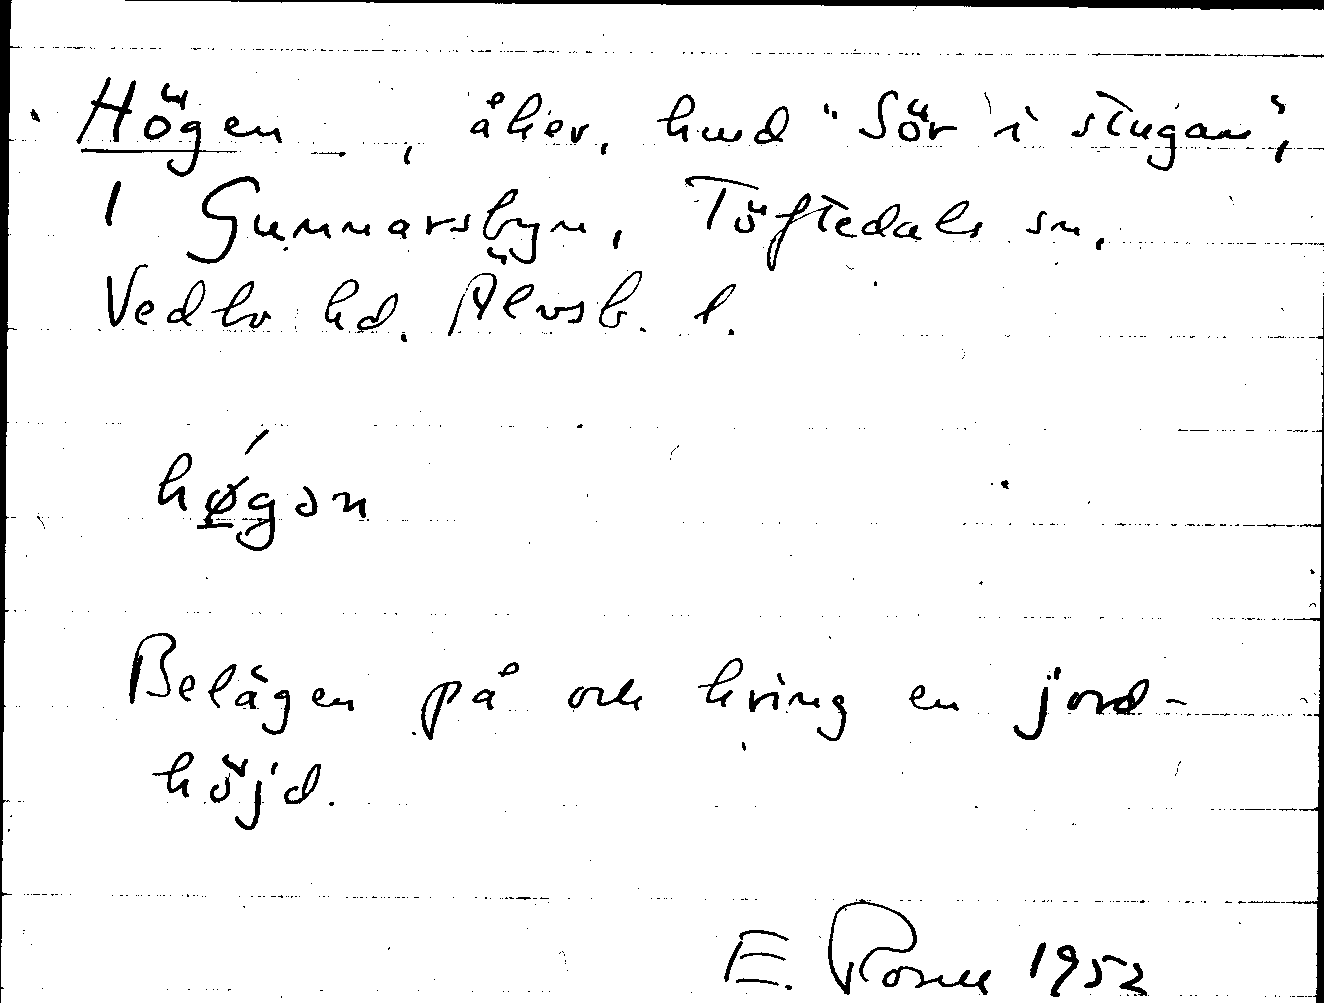 Högen, åker, hmd "Sör i stugan",
1 Gunnarsbyn, Töftedals sn,
Vedbo hd. Älvsb. l.
hǿgən
Belägen på och kring en jord-
höjd.
E. 1952